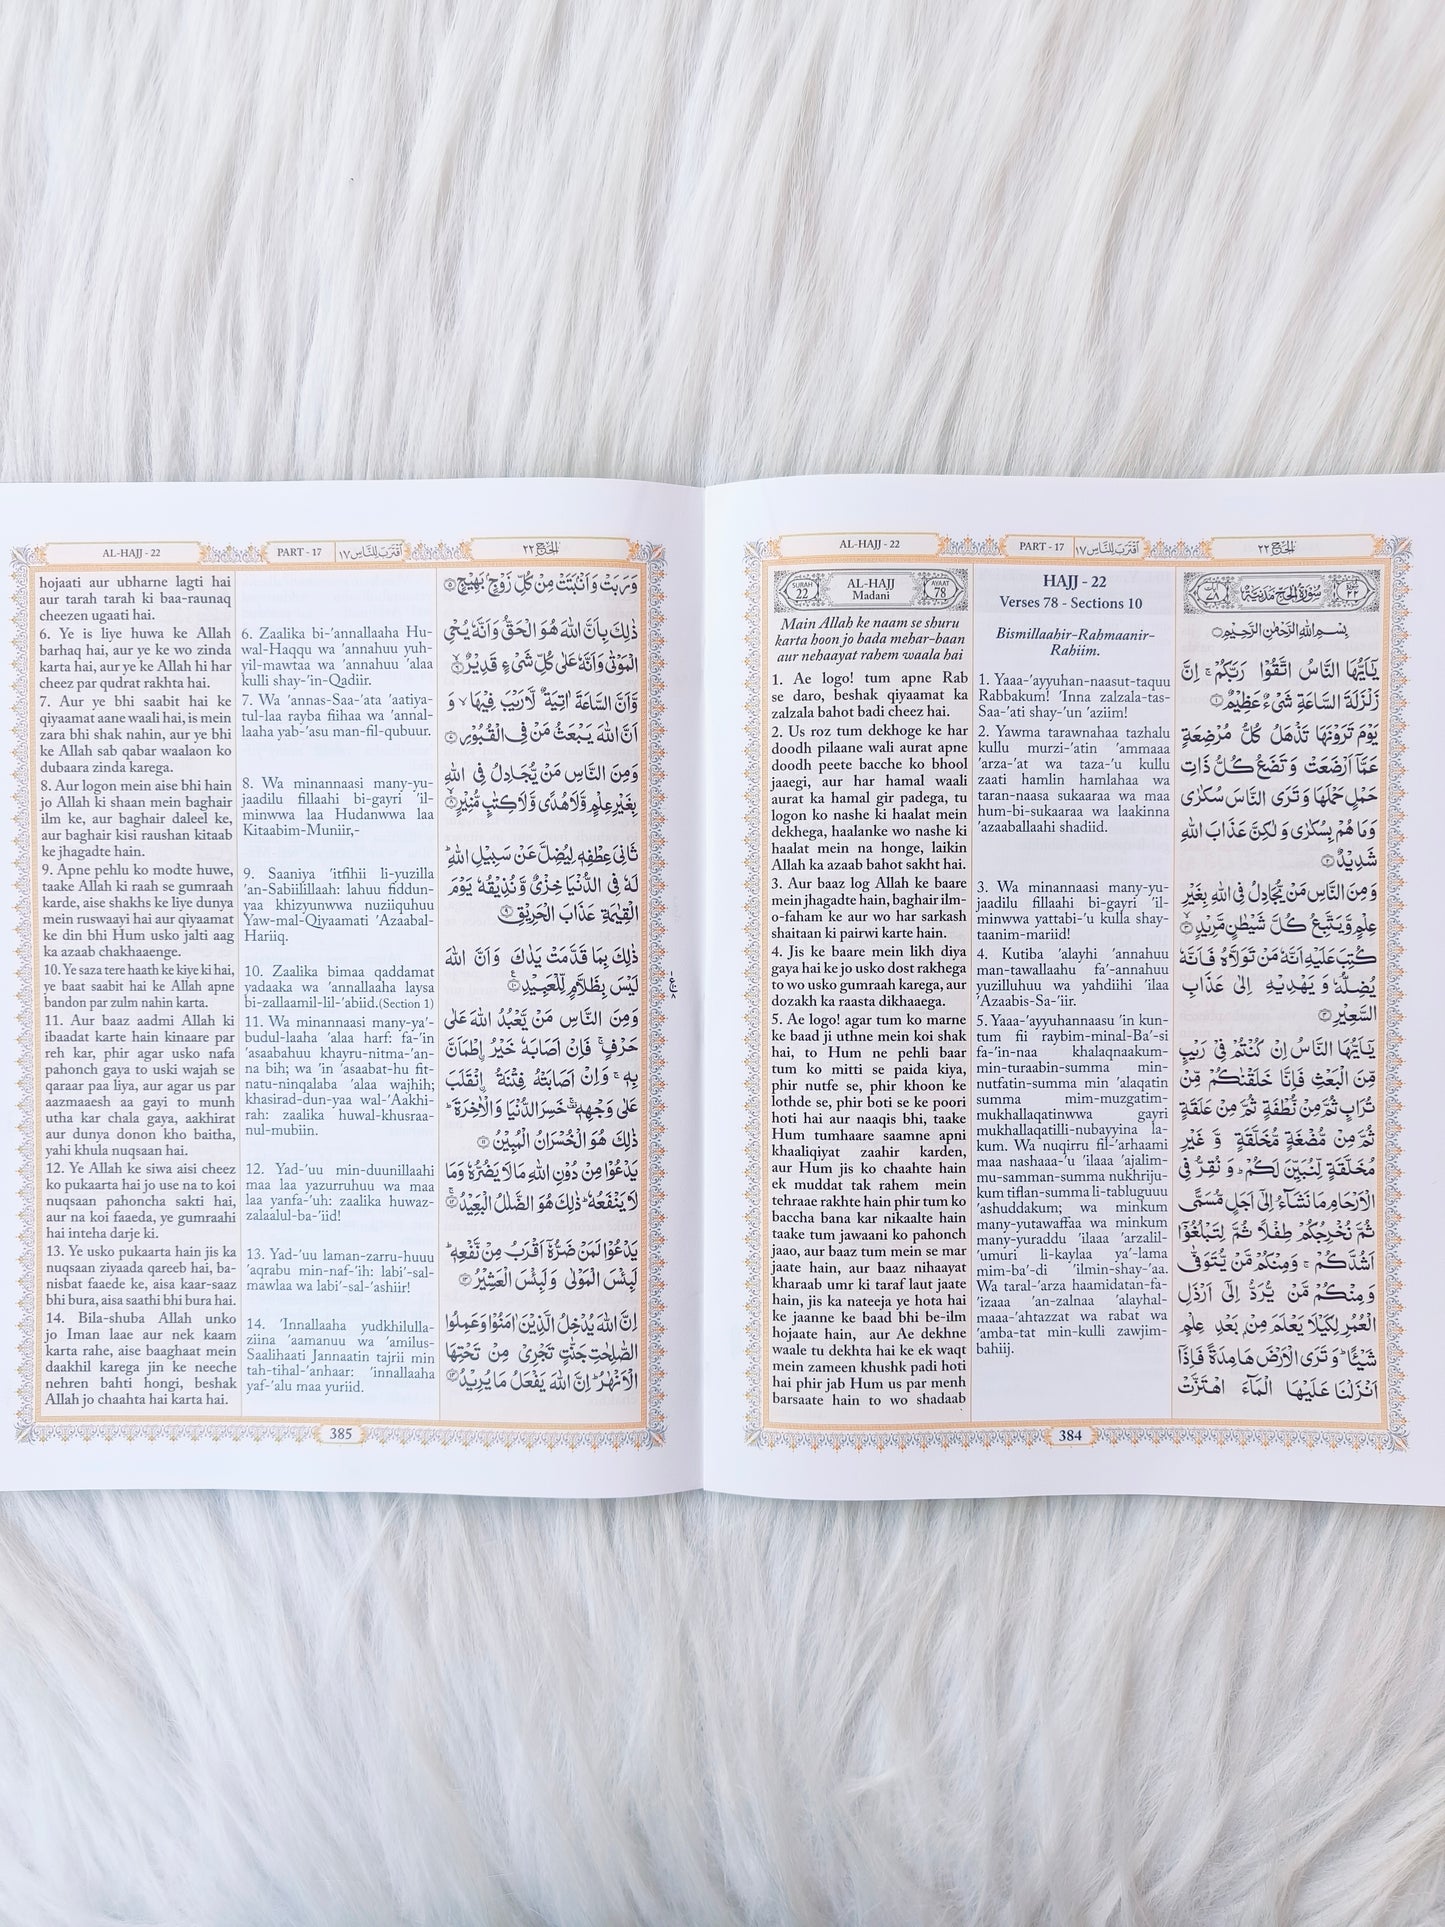 AL-HAJJ - 22
PART - 17
اقترب للناس ١٧
الحج ٢٢
SURAH
22
AL-HAJJ
Madani
AYAAT
78
Main Allah ke naam se shuru
karta hoon jo bada mehar-baan
aur nehaayat rahem waala hai
1. Ae logo! tum apne Rab
se daro, beshak qiyaamat ka
zalzala bahot badi cheez hai.
2. Us roz tum dekhoge ke har
doodh pilaane wali aurat apne
doodh peete bacche ko bhool
jaaegi, aur har hamal waali
aurat ka hamal gir padega, tu
logon ko nashe ki haalat mein
dekhega, haalanke wo nashe ki
haalat mein na honge, laikin
Allah ka azaab bahot sakht hai.
3. Aur baaz log Allah ke baare
mein jhagadte hain, baghair ilm-
o-faham ke aur wo har sarkash
shaitaan ki pairwi karte hain.
4. Jis ke baare mein likh diya
gaya hai ke jo usko dost rakhega
to wo usko gumraah karega, aur
dozakh ka raasta dikhaaega.
5. Ae logo! agar tum ko marne
ke baad ji uthne mein koi shak
hai, to Hum ne pehli baar
tum ko mitti se paida kiya,
phir nutfe se, phir khoon ke
lothde se, phir boti se ke poori
hoti hai aur naaqis bhi, taake
Hum tumhaare saamne apni
khaaliqiyat zaahir karden,
aur Hum jis ko chaahte hain
ek muddat tak rahem mein
tehraae rakhte hain phir tum ko
baccha bana kar nikaalte hain
taake tum jawaani ko pahonch
jaao, aur baaz tum mein se mar
jaate hain, aur baaz nihaayat
kharaab umr ki taraf laut jaate
hain, jis ka nateeja ye hota hai
ke jaanne ke baad bhi be-ilm
hojaate hain, aur Ae dekhne
waale tu dekhta hai ke ek waqt
mein zameen khushk padi hoti
hai phir jab Hum us par menh
barsaate hain to wo shadaab
HAJJ - 22
Verses 78 - Sections 10
Bismillaahir-Rahmaanir-
Rahiim.
1. Yaaa-'ayyuhan-naasut-taquu
Rabbakum! 'Inna zalzala-tas-
Saa-'ati shay-'un 'aziim!
2. Yawma tarawnahaa tazhalu
kullu murzi-'atin 'ammaaa
'arza-'at wa taza-'u kullu
zaati hamlin hamlahaa wa
taran-naasa sukaaraa wa maa
hum-bi-sukaaraa wa laakinna
'azaaballaahi shadiid.
3. Wa minannaasi many-yu-
jaadilu fillaahi bi-gayri 'il-
minwwa yattabi-'u kulla shay-
taanim-mariid!
4. Kutiba 'alayhi 'annahuu
man-tawallaahu fa'-annahuu
yuzilluhuu wa yahdiihi 'ilaa
'Azaabis-Sa-'iir.
5. Yaaa-'ayyuhannaasu 'in kun-
tum fii raybim-minal-Ba'-si
fa-'in-naa khalaqnaakum-
min-turaabin-summa min-
nutfatin-summa min 'alaqatin
summa mim-muzgatim-
mukhallaqatinwwa gayri
mukhallaqatilli-nubayyina la-
kum. Wa nuqirru fil-'arhaami
maa nashaaa-'u 'ilaaa 'ajalim-
mu-samman-summa nukhriju-
kum tiflan-summa li-tabluguuu
'ashuddakum; wa minkum
many-yutawaffaa wa minkum
many-yuraddu 'ilaaa 'arzalil-
'umuri li-kaylaa ya'-lama
mim-ba'-di 'ilmin-shay-'aa.
Wa taral-'arza haamidatan-fa-
'izaaa 'an-zalnaa 'alayhal-
maaa-'ahtazzat wa rabat wa
'amba-tat min-kulli zawjim-
bahiij.
سُوْرَةُ الْحَجِّ مَدَنِيَّةٌ
بِسْمِ اللّٰهِ الرَّحْمٰنِ الرَّحِيْمِ
يٰٓاَيُّهَا النَّاسُ اتَّقُوْا رَبَّكُمْ ۚ اِنَّ
زَلْزَلَةَ السَّاعَةِ شَيْءٌ عَظِيْمٌ ١
يَوْمَ تَرَوْنَهَا تَذْهَلُ كُلُّ مُرْضِعَةٍ
عَمَّآ اَرْضَعَتْ وَ تَضَعُ كُلُّ ذَاتِ
حَمْلٍ حَمْلَهَا وَتَرَى النَّاسَ سُكٰرٰى
وَمَا هُمْ بِسُكٰرٰى وَ لٰكِنَّ عَذَابَ اللّٰهِ
شَدِيْدٌ ٢
وَمِنَ النَّاسِ مَنْ يُّجَادِلُ فِى اللّٰهِ بِغَيْرِ
عِلْمٍ وَّيَتَّبِعُ كُلَّ شَيْطٰنٍ مَّرِيْدٍ ٣
كُتِبَ عَلَيْهِ اَنَّهٗ مَنْ تَوَلَّاهُ فَاَنَّهٗ
يُضِلُّهٗ وَ يَهْدِيْهِ اِلٰى عَذَابِ
السَّعِيْرِ ٤
يٰٓاَيُّهَا النَّاسُ اِنْ كُنْتُمْ فِيْ رَيْبٍ
مِّنَ الْبَعْثِ فَاِنَّا خَلَقْنٰكُمْ مِّنْ
تُرَابٍ ثُمَّ مِنْ نُّطْفَةٍ ثُمَّ مِنْ عَلَقَةٍ
ثُمَّ مِنْ مُّضْغَةٍ مُّخَلَّقَةٍ وَّ غَيْرِ
مُخَلَّقَةٍ لِّنُبَيِّنَ لَكُمْ ؕ وَ نُقِرُّ فِى
الْاَرْحَامِ مَا نَشَآءُ اِلٰٓى اَجَلٍ مُّسَمًّى
ثُمَّ نُخْرِجُكُمْ طِفْلًا ثُمَّ لِتَبْلُغُوْٓا
اَشُدَّكُمْ ۚ وَمِنْكُمْ مَّنْ يُّتَوَفّٰى
وَمِنْكُمْ مَّنْ يُّرَدُّ اِلٰٓى اَرْذَلِ
الْعُمُرِ لِكَيْلَا يَعْلَمَ مِنْۢ بَعْدِ عِلْمٍ
شَيْئًا ؕ وَ تَرَى الْاَرْضَ هَامِدَةً فَاِذَآ
اَنْزَلْنَا عَلَيْهَا الْمَآءَ اهْتَزَّتْ
384
AL-HAJJ - 22
PART - 17
اقترب للناس ١٧
الحج ٢٢
hojaati aur ubharne lagti hai
aur tarah tarah ki baa-raunaq
cheezen ugaati hai.
6. Ye is liye huwa ke Allah
barhaq hai, aur ye ke wo zinda
karta hai, aur ye ke Allah hi har
cheez par qudrat rakhta hai.
7. Aur ye bhi saabit hai ke
qiyaamat aane waali hai, is mein
zara bhi shak nahin, aur ye bhi
ke Allah sab qabar waalaon ko
dubaara zinda karega.
8. Aur logon mein aise bhi hain
jo Allah ki shaan mein baghair
ilm ke, aur baghair daleel ke,
aur baghair kisi raushan kitaab
ke jhagadte hain.
9. Apne pehlu ko modte huwe,
taake Allah ki raah se gumraah
karde, aise shakhs ke liye dunya
mein ruswaayi hai aur qiyaamat
ke din bhi Hum usko jalti aag
ka azaab chakhaaenge.
10. Ye saza tere haath ke kiye ki hai,
ye baat saabit hai ke Allah apne
bandon par zulm nahin karta.
11. Aur baaz aadmi Allah ki
ibaadat karte hain kinaare par
reh kar, phir agar usko nafa
pahonch gaya to uski wajah se
qaraar paa liya, aur agar us par
aazmaaesh aa gayi to munh
utha kar chala gaya, aakhirat
aur dunya donon kho baitha,
yahi khula nuqsaan hai.
12. Ye Allah ke siwa aisi cheez
ko pukaarta hai jo use na to koi
nuqsaan pahoncha sakti hai,
aur na koi faaeda, ye gumraahi
hai inteha darje ki.
13. Ye usko pukaarta hain jis ka
nuqsaan ziyaada qareeb hai, ba-
nisbat faaede ke, aisa kaar-saaz
bhi bura, aisa saathi bhi bura hai.
14. Bila-shuba Allah unko
jo Iman laae aur nek kaam
karta rahe, aise baaghaat mein
daakhil karega jin ke neeche
nehren bahti hongi, beshak
Allah jo chaahta hai karta hai.
6. Zaalika bi-'annallaaha Hu-
wal-Haqqu wa 'annahuu yuh-
yil-mawtaa wa 'annahuu 'alaa
kulli shay-'in-Qadiir.
7. Wa 'annas-Saa-'ata 'aatiya-
tul-laa rayba fiihaa wa 'annal-
laaha yab-'asu man-fil-qubuur.
8. Wa minannaasi many-yu-
jaadilu fillaahi bi-gayri 'il-
minwwa laa Hudanwwa laa
Kitaabim-Muniir,-
9. Saaniya 'itfihii li-yuzilla
'an-Sabiilillaah: lahuu fiddun-
yaa khizyunwwa nuziiquhuu
Yaw-mal-Qiyaamati 'Azaabal-
Hariiq.
10. Zaalika bimaa qaddamat
yadaaka wa 'annallaaha laysa
bi-zallaamil-lil-'abiid.(Section 1)
11. Wa minannaasi many-ya'-
budul-laaha 'alaa harf: fa-'in
'asaabahuu khayru-nitma-'an-
na bih; wa 'in 'asaabat-hu fit-
natu-ninqalaba 'alaa wajhih;
khasirad-dun-yaa wal-'Aakhi-
rah: zaalika huwal-khusraa-
nul-mubiin.
12. Yad-'uu min-duunillaahi
maa laa yazurruhuu wa maa
laa yanfa-'uh: zaalika huwaz-
zalaalul-ba-'iid!
13. Yad-'uu laman-zarru-huuu
'aqrabu min-naf-'ih: labi'-sal-
mawlaa wa labi'-sal-'ashiir!
14. 'Innallaaha yudkhilulla-
ziina 'aamanuu wa 'amilus-
Saalihaati Jannaatin tajrii min
tah-tihal-'anhaar: 'innallaaha
yaf-'alu maa yuriid.
وَرَبَتْ وَ اَنْۢبَتَتْ مِنْ كُلِّ زَوْجٍۭ بَهِيْجٍ ٥
ذٰلِكَ بِاَنَّ اللّٰهَ هُوَ الْحَقُّ وَاَنَّهٗ يُحْيِ
الْمَوْتٰى وَاَنَّهٗ عَلٰى كُلِّ شَيْءٍ قَدِيْرٌ ٦
وَّاَنَّ السَّاعَةَ اٰتِيَةٌ لَّا رَيْبَ فِيْهَا ۙ وَ
اَنَّ اللّٰهَ يَبْعَثُ مَنْ فِى الْقُبُوْرِ ٧
وَمِنَ النَّاسِ مَنْ يُّجَادِلُ فِى اللّٰهِ
بِغَيْرِ عِلْمٍ وَّلَا هُدًى وَّلَا كِتٰبٍ مُّنِيْرٍ ٨
ثَانِيَ عِطْفِهٖ لِيُضِلَّ عَنْ سَبِيْلِ اللّٰهِ ؕ
لَهٗ فِى الدُّنْيَا خِزْيٌ وَّنُذِيْقُهٗ يَوْمَ
الْقِيٰمَةِ عَذَابَ الْحَرِيْقِ ٩
ذٰلِكَ بِمَا قَدَّمَتْ يَدٰكَ وَاَنَّ اللّٰهَ
لَيْسَ بِظَلَّامٍ لِّلْعَبِيْدِ ١٠
وَمِنَ النَّاسِ مَنْ يَّعْبُدُ اللّٰهَ عَلٰى
حَرْفٍ ۚ فَاِنْ اَصَابَهٗ خَيْرُ ۨاطْمَاَنَّ
بِهٖ ۚ وَاِنْ اَصَابَتْهُ فِتْنَةُ ۨانْقَلَبَ
عَلٰى وَجْهِهٖ خَسِرَ الدُّنْيَا وَالْاٰخِرَةَ ؕ
ذٰلِكَ هُوَ الْخُسْرَانُ الْمُبِيْنُ ١١
يَدْعُوْا مِنْ دُوْنِ اللّٰهِ مَا لَا يَضُرُّهٗ وَمَا
لَا يَنْفَعُهٗ ؕ ذٰلِكَ هُوَ الضَّلٰلُ الْبَعِيْدُ ١٢
يَدْعُوْا لَمَنْ ضَرُّهٗٓ اَقْرَبُ مِنْ نَّفْعِهٖ ؕ
لَبِئْسَ الْمَوْلٰى وَلَبِئْسَ الْعَشِيْرُ ١٣
اِنَّ اللّٰهَ يُدْخِلُ الَّذِيْنَ اٰمَنُوْا وَعَمِلُوا
الصّٰلِحٰتِ جَنّٰتٍ تَجْرِيْ مِنْ تَحْتِهَا
الْاَنْهٰرُ ؕ اِنَّ اللّٰهَ يَفْعَلُ مَا يُرِيْدُ ١٤
385